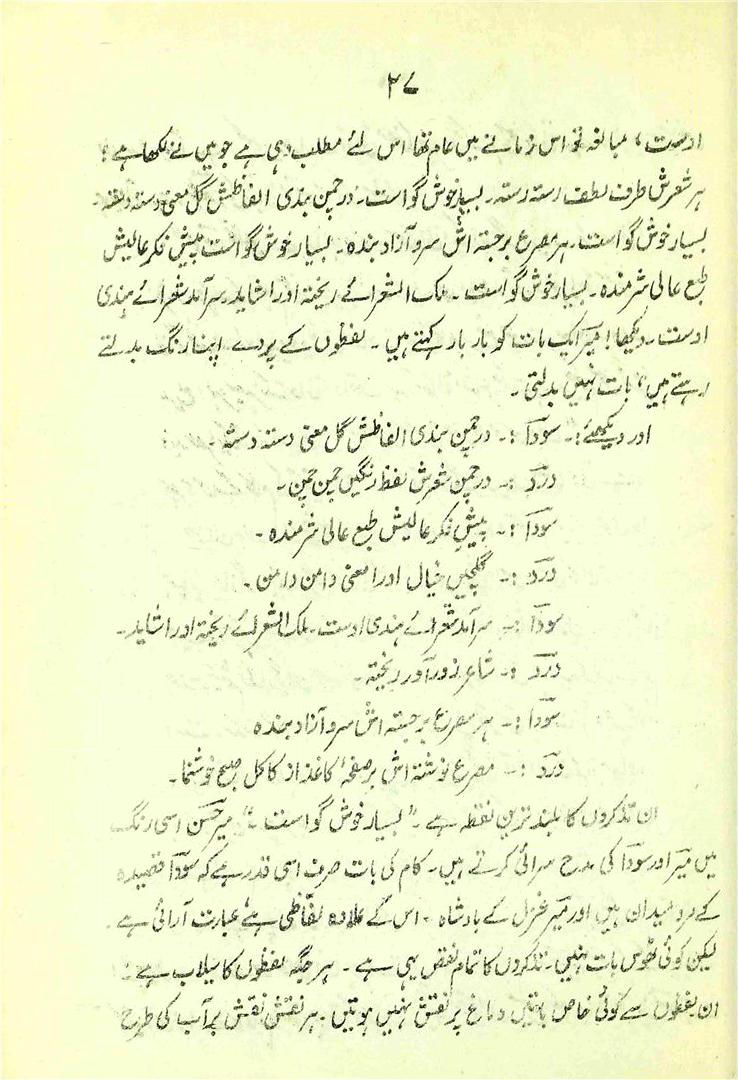 ۳۷
اوست، مبالغہ تو اس زمانے میں عام تھا اس لئے مطلب وہی ہے جو میں نے لکھا ہے:
ہر شعرش طرف لطف رستہ رستہ۔ بسیار خوش گو است۔ در چمن بندی الفاظش گل معنی دستہ دستہ۔
بسیار خوش گو است۔ ہر مصرع برجستہ اش سرو آزاد بندہ۔ بسیار خوش گو است پیش فکر عالیش
طبع عالی شرمندہ۔ بسیار خوش گو است۔ ملک الشعرائے ریختہ او را شاید۔ سر آمد شعرائے ہندی
اوست۔ دیکھا! میر ایک بات کو بار بار کہتے ہیں۔ لفظوں کے پردے اپنا رنگ بدلتے
رہتے ہیں، بات نہیں بدلتی۔
اور دیکھئے:۔ سودا :۔ در چمن بندی الفاظش گل معنی دستہ دستہ۔
درد :۔ در چمن شعرش لفظ رنگیں چمن چمن۔
سودا :۔ پیش فکر عالیش طبع عالی شرمندہ۔
درد :۔ گلچیں خیال او را معنی دامن دامن۔
سودا :۔ سر آمد شعرائے ہندی اوست۔ ملک الشعرائے ریختہ او را شاید۔
درد :۔ شاعر زور آور ریختہ۔
سودا :۔ ہر مصرع برجستہ اش سرو آزاد بندہ
درد :۔ مصرع نوشتہ اش بر صفحۂ کاغذ از کاکل صبح خوشنما۔
ان تذکروں کا بلند ترین نقطہ ہے۔ "بسیار خوش گو است۔" میر حسن اسی رنگ
میں میر اور سودا کی مدح سرائی کرتے ہیں۔ کام کی بات صرف اسی قدر ہے کہ سودا قصیدہ
کے مرد میدان ہیں اور میر غزل کے بادشاہ۔ اس کے علاوہ لفاظی ہے عبارت آرائی ہے۔
لیکن کوئی ٹھوس بات نہیں۔ تذکروں کا تمام نقص یہی ہے۔ ہر جگہ لفظوں کا سیلاب ہے
ان لفظوں سے کوئی خاص باتیں دماغ پر نقش نہیں ہوتیں۔ ہر نقش نقش بر آب کی طرح